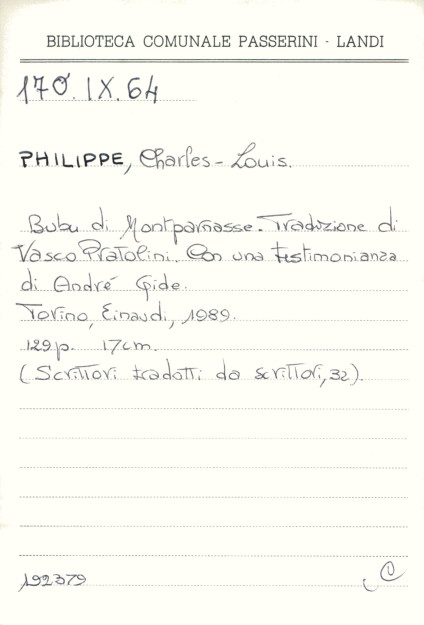 BIBLIOTECA COMUNALE PASSERINI - LANDI
170. IX. 64
PHILIPPE, Charles-Louis.
Bubu di Montparnasse. Traduzione di
Vasco Pratolini. Con una testimonianza
di André Gide.
Torino, Einaudi, 1989.
129 p. 17 cm.
(Scrittori tradotti da scrittori, 32).
192379